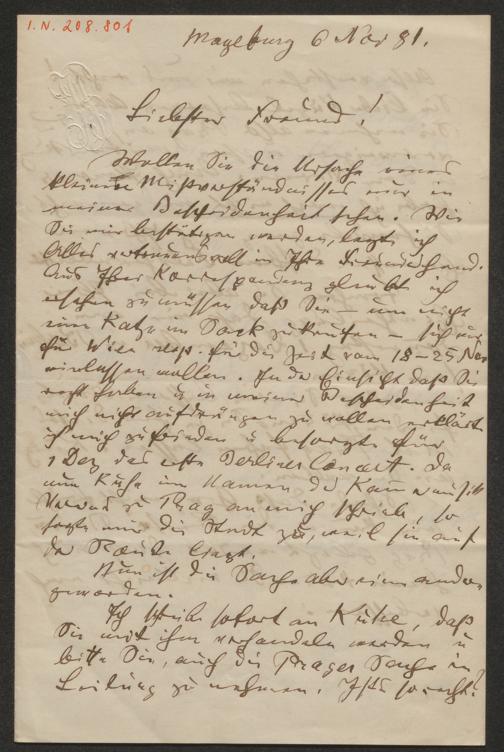 I.N. 208.801
Magdeburg 6 Nov 81.
Liebster Freund!
Wollen Sie die Ursache eines
kleinen Mißverständnisses nur in
meiner Bescheidenheit sehen. Wie
Sie mir bestätigen werden, legte ich
Alles vertrauensvoll in Ihre Freundeshand.
Aus Ihrer Korrespondenz glaubt ich
ersehen zu müssen daß Sie – um nicht
eine Katze im Sack zu kaufen – sich nur
für Wien resp. für die Zeit vom 18–25 Nov
einlassen wollen. In der Einsicht daß Sie
recht haben u in meiner Bescheidenheit
mich nicht aufdrängen zu wollen erklärte
ich mich zufrieden u besorgte für
1 Dez das erste Berliner Concert. Da
nun Kuhe im Namen des Kammermusik
Vereins zu Prag an mich schrieb, so
sagte mir die Stadt zu, weil sie auf
der Route liegt.
Nun ist die Sache aber eine andere
geworden.
Ich schreibe sofort an Kuhe, daß
Sie mit ihm verhandeln werden u
bitte Sie, auch die Prager Sache in
Leitung zu nehmen. Ists so recht?